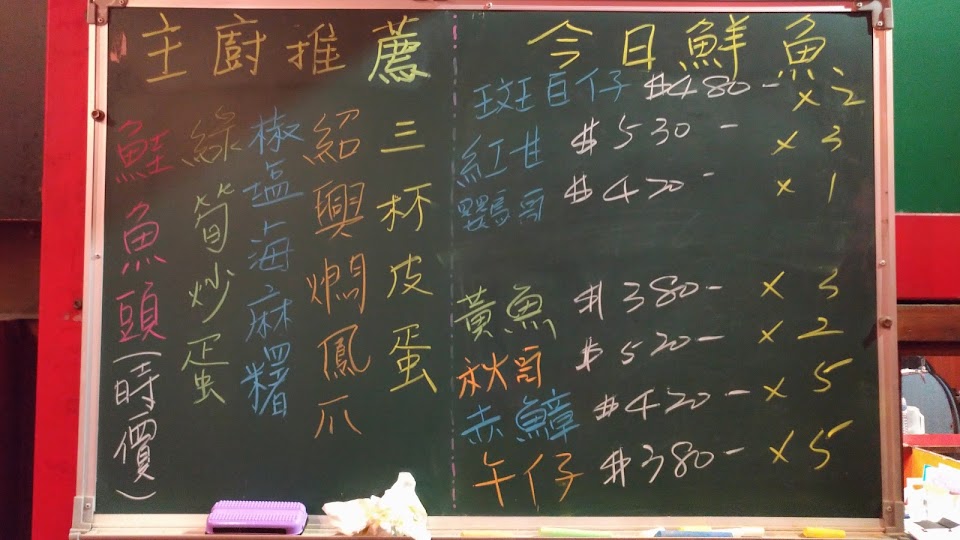 主廚推薦
三杯皮蛋
紹興燜鳳爪
椒塩海麻糬
綠筍炒蛋
鮭魚頭(時價)
今日鮮魚
斑豆仔 $480- x2
紅甘 $530- x3
鸚哥 $420- x1
黃魚 $380- x3
秋哥 $520- x2
赤鱆 $420- x5
午仔 $380- x5